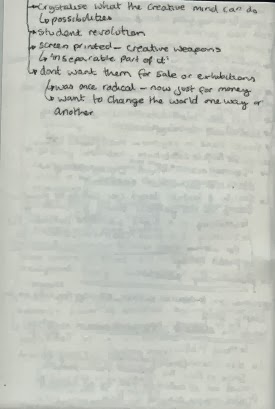 → crystalise what the creative mind can do
↳ possibilities
→ student revolution
→ screen printed – creative weapons
↳ 'inseparable part of it'
→ dont want them for sale or exhibitions
↳ was once radical – now just for money
↳ want to change the world one way or
another